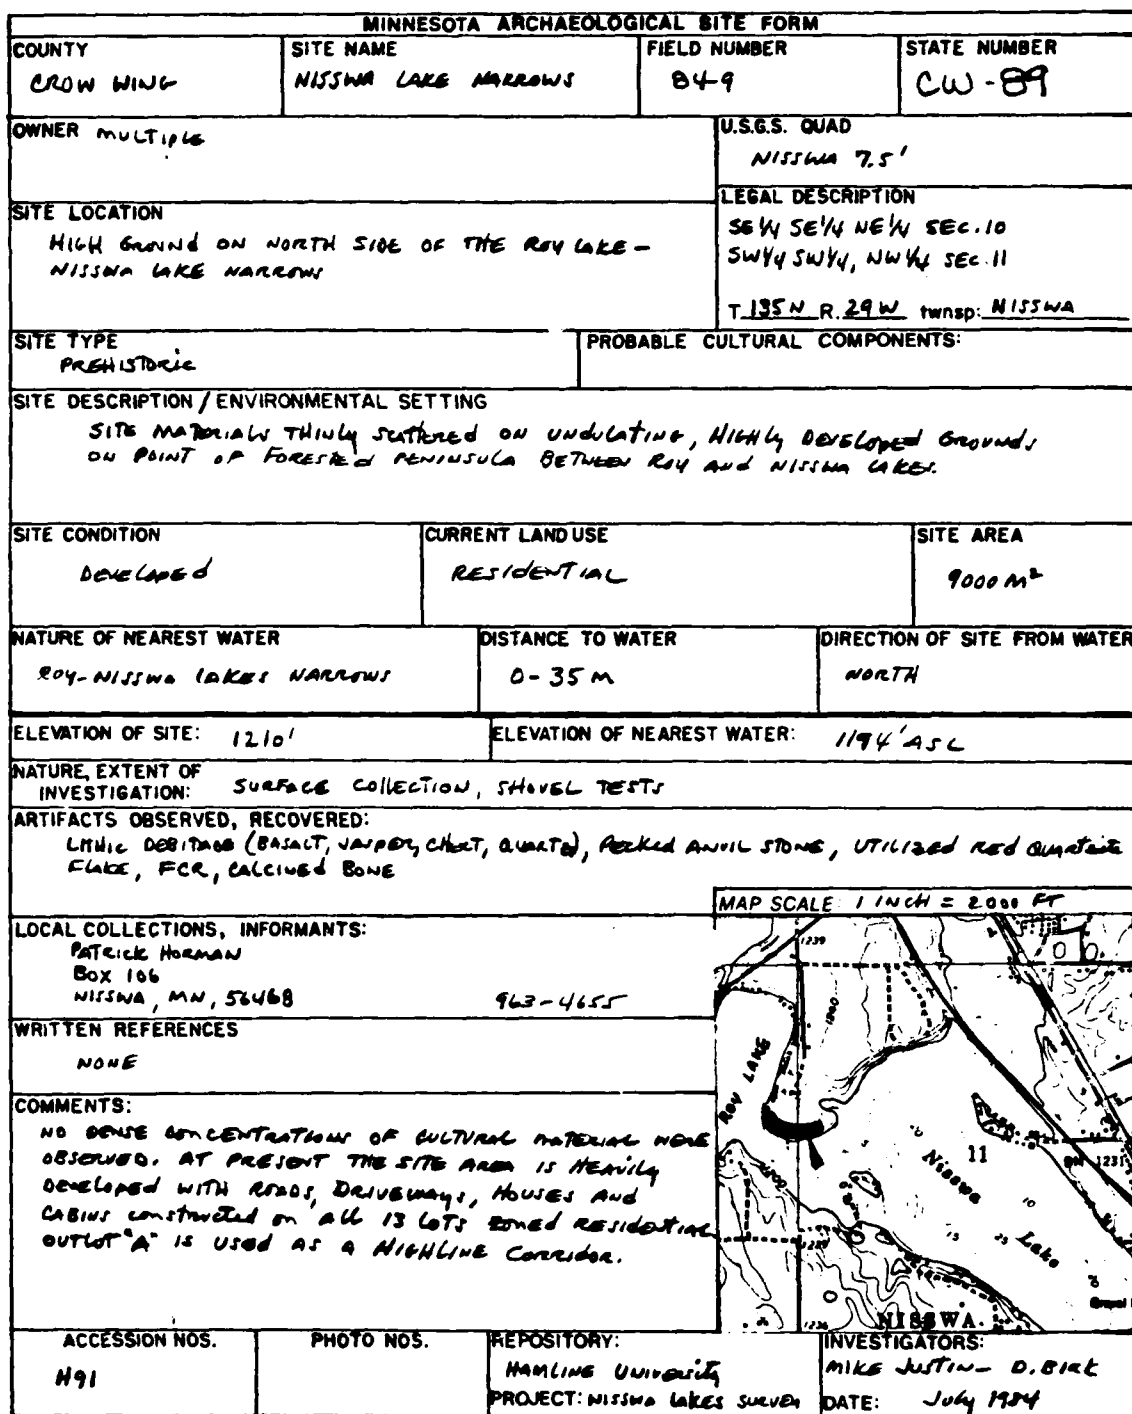 MINNESOTA ARCHAEOLOGICAL SITE FORM
COUNTY
CROW WING
SITE NAME
NISSWA LAKE NARROWS
FIELD NUMBER
84-9
STATE NUMBER
CW-89
OWNER MULTIPLE
U.S.G.S. QUAD
NISSWA 7.5'
SITE LOCATION
HIGH GROUND ON NORTH SIDE OF THE ROY LAKE -
NISSWA LAKE NARROWS
LEGAL DESCRIPTION
SE 1/4 SE 1/4 NE 1/4 SEC. 10
SW 1/4 SW 1/4, NW 1/4 SEC. 11
T. 135 N R. 29 W twnsp: NISSWA
SITE TYPE
PREHISTORIC
PROBABLE CULTURAL COMPONENTS:
SITE DESCRIPTION / ENVIRONMENTAL SETTING
SITE MATERIALS THINLY SCATTERED ON UNDULATING, HIGHLY DEVELOPED GROUNDS
ON POINT OF FORESTED PENINSULA BETWEEN ROY AND NISSWA LAKES.
SITE CONDITION
DEVELOPED
CURRENT LAND USE
RESIDENTIAL
SITE AREA
9000 M²
NATURE OF NEAREST WATER
ROY-NISSWA LAKES NARROWS
DISTANCE TO WATER
0-35 M
DIRECTION OF SITE FROM WATER
NORTH
ELEVATION OF SITE: 1210'
ELEVATION OF NEAREST WATER: 1194' ASL
NATURE, EXTENT OF
INVESTIGATION: SURFACE COLLECTION, SHOVEL TESTS
ARTIFACTS OBSERVED, RECOVERED:
LITHIC DEBITAGE (BASALT, JASPER, CHERT, QUARTZ), PECKED ANVIL STONE, UTILIZED RED QUARTZITE
FLAKE, FCR, CALCINED BONE
MAP SCALE 1 INCH = 2000 FT
LOCAL COLLECTIONS, INFORMANTS:
PATRICK HORMAN
BOX 106
NISSWA, MN, 56468 963-4655
WRITTEN REFERENCES
NONE
COMMENTS:
NO DENSE CONCENTRATIONS OF CULTURAL MATERIAL WERE
OBSERVED. AT PRESENT THE SITE AREA IS HEAVILY
DEVELOPED WITH ROADS, DRIVEWAYS, HOUSES AND
CABINS CONSTRUCTED ON ALL 13 LOTS ZONED RESIDENTIAL
OUTLOT "A" IS USED AS A HIGHLINE CORRIDOR.
1239
ROY LAKE
11
Nisswa
Lake
1231
1239
1236
NISSWA
ACCESSION NOS.
H91
PHOTO NOS.
REPOSITORY:
HAMLINE UNIVERSITY
PROJECT: NISSWA LAKES SURVEY
INVESTIGATORS:
MIKE JUSTIN - D. BIRK
DATE: July 1984